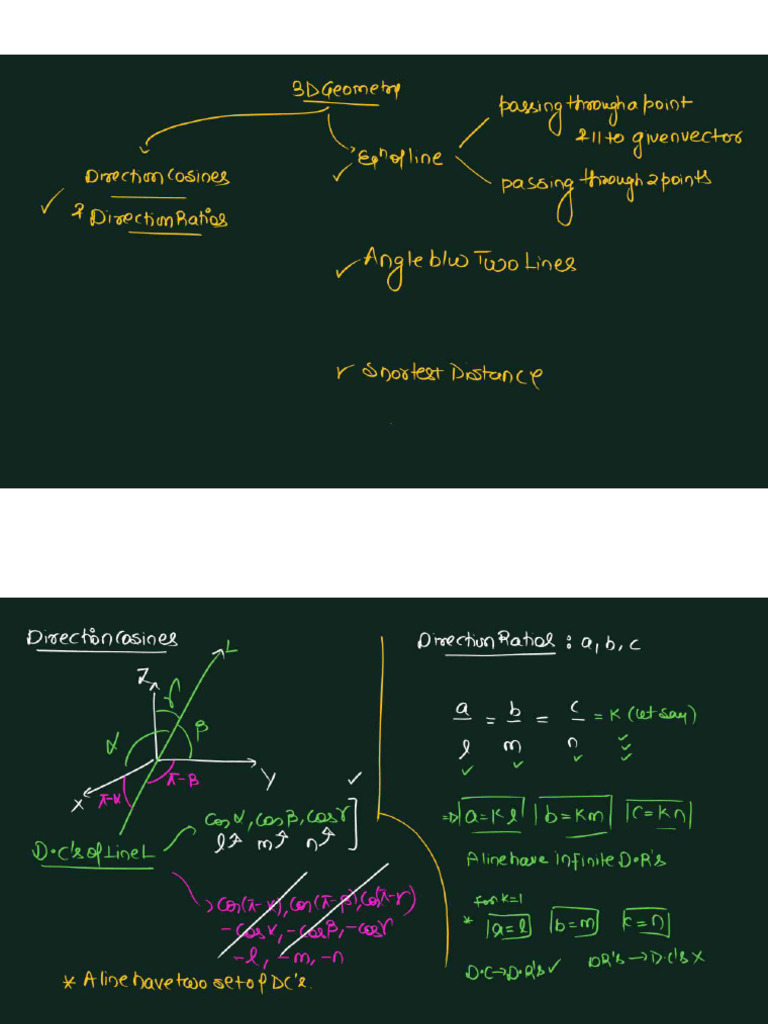 3D Geometry
Direction Cosines
& Direction Ratios
Eqⁿ of line
passing through a point
& || to given vector
passing through 2 points
Angle b/w Two Lines
Shortest Distance
Direction Cosines
L
Z
γ
α
β
X
Y
π-α
π-β
D.C's of Line L
cosα, cosβ, cosγ
l m n
cos(π-α), cos(π-β), cos(π-γ)
-cosα, -cosβ, -cosγ
-l, -m, -n
* A line have two set of DC's.
Direction Ratios : a, b, c
a/l = b/m = c/n = K (let say)
⇒ a=Kl b=Km c=Kn
A line have infinite D.R's
for K=1
* a=l b=m c=n
D.C → D.R's ✓ DR's → D.C's X